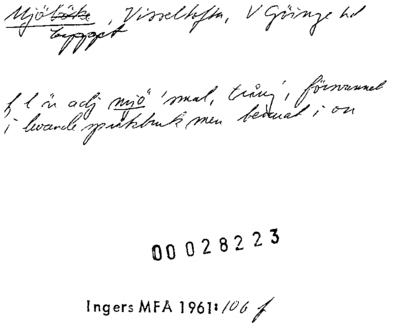 Mjöböke, Visseltofta, V Göinge hd
byggget
f l är adj mjö 'smal, trång', försvunnet
i levande språkbruk men bevarat i on
00028223
Ingers MFA 1961: 106 f